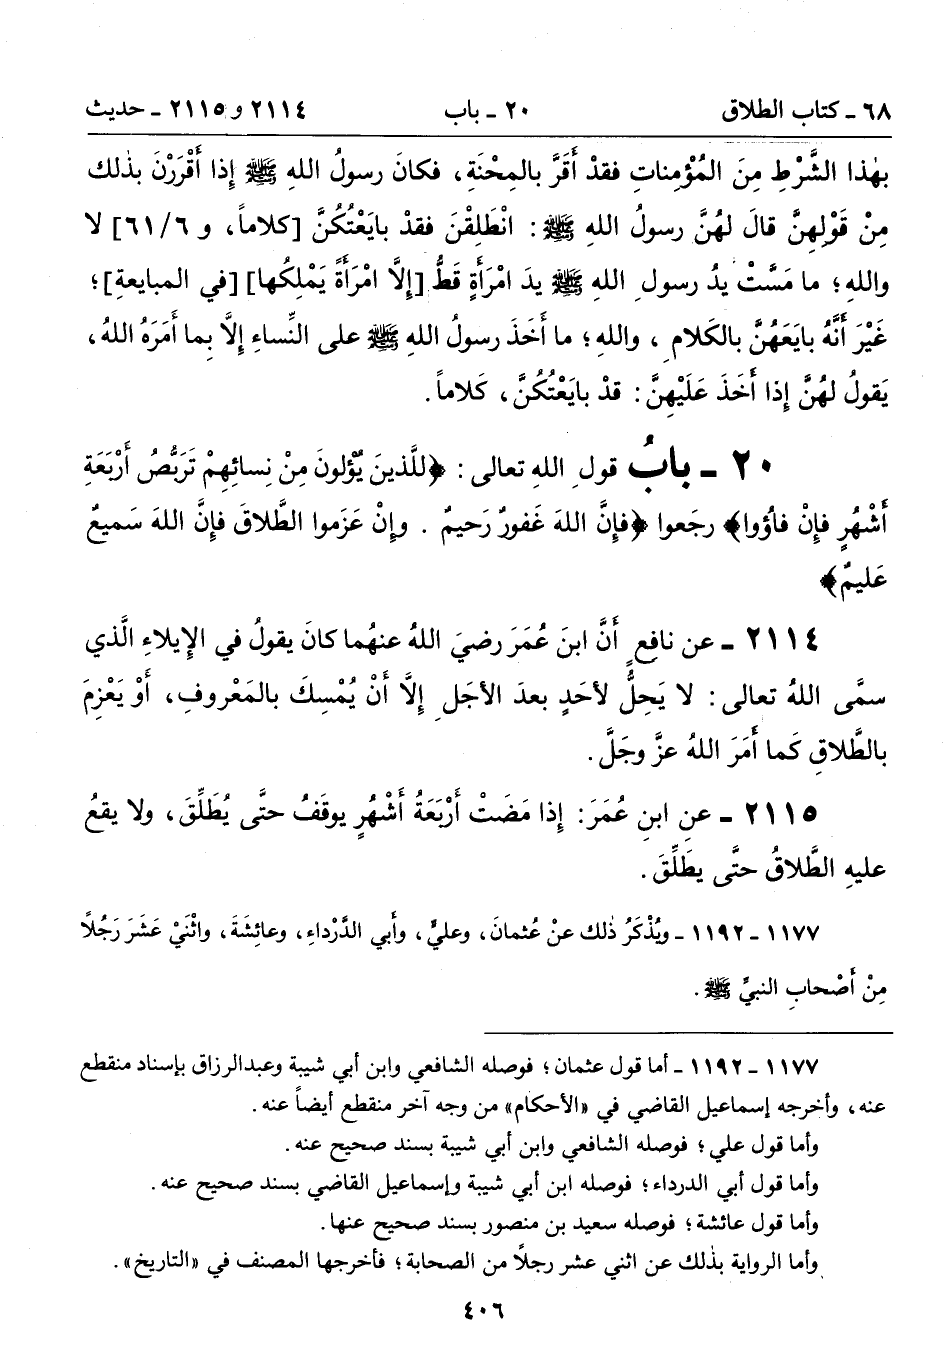 ٦٨ ـ كتاب الطلاق ٢٠ ـ باب ٢١١٤ و ٢١١٥ ـ حديث
بهٰذا الشَّرْطِ مِنَ المُؤْمِناتِ فقدْ أَقَرَّ بالمِحْنَةِ، فكانَ رسولُ اللهِ ﷺ إذا أَقْرَرْنَ بذلك
مِنْ قَوْلِهِنَّ قالَ لهُنَّ رسولُ اللهِ ﷺ: انْطَلِقْنَ فقدْ بايَعْتُكُنَّ [كلاماً، و ٦/٦١] لا
واللهِ؛ ما مَسَّتْ يدُ رسولِ اللهِ ﷺ يدَ امْرَأَةٍ قَطُّ [إلَّا امْرَأَةً يَمْلِكُها] [في المبايعةِ]؛
غَيْرَ أَنَّهُ بايَعَهُنَّ بالكَلامِ، واللهِ؛ ما أَخَذَ رسولُ اللهِ ﷺ على النِّساءِ إلَّا بما أَمَرَهُ اللهُ،
يَقولُ لهُنَّ إذا أَخَذَ عَلَيْهِنَّ: قدْ بايَعْتُكُنَّ، كَلاماً.
٢٠ ـ بابُ قولِ اللهِ تعالى: ﴿للَّذينَ يُؤْلونَ مِنْ نِسائِهِمْ تَرَبُّصُ أَرْبَعَةِ
أَشْهُرٍ فإنْ فاؤوا﴾ رجَعوا ﴿فإنَّ اللهَ غَفورٌ رَحيمٌ . وإنْ عَزَموا الطَّلاقَ فإنَّ اللهَ سَميعٌ
عَليمٌ﴾
٢١١٤ ـ عن نافِعٍ أَنَّ ابنَ عُمَرَ رضيَ اللهُ عنهُما كانَ يقولُ في الإِيلاءِ الَّذي
سمَّى اللهُ تعالى: لا يَحِلُّ لأحَدٍ بعدَ الأجَلِ إلَّا أَنْ يُمْسِكَ بالمَعْروفِ، أَوْ يَعْزِمَ
بالطَّلاقِ كَما أَمَرَ اللهُ عزَّ وجَلَّ.
٢١١٥ ـ عنِ ابنِ عُمَرَ: إذا مَضَتْ أَرْبَعَةُ أَشْهُرٍ يوقَفُ حتَّى يُطَلِّقَ، ولا يقعُ
عليهِ الطَّلاقُ حتَّى يطَلِّقَ.
١١٧٧ ـ ١١٩٢ ـ ويُذْكَرُ ذٰلك عنْ عُثمانَ، وعليٍّ، وأَبي الدَّرْداءِ، وعائِشَةَ، واثْنَيْ عَشَرَ رَجُلاً
مِنْ أَصْحابِ النبيِّ ﷺ.
١١٧٧ ـ ١١٩٢ ـ أما قول عثمان؛ فوصله الشافعي وابن أبي شيبة وعبدالرزاق بإسناد منقطع
عنه، وأخرجه إسماعيل القاضي في «الأحكام» من وجه آخر منقطع أيضاً عنه.
وأما قول علي؛ فوصله الشافعي وابن أبي شيبة بسند صحيح عنه.
وأما قول أبي الدرداء؛ فوصله ابن أبي شيبة وإسماعيل القاضي بسند صحيح عنه.
وأما قول عائشة؛ فوصله سعيد بن منصور بسند صحيح عنها.
وأما الرواية بذٰلك عن اثني عشر رجلاً من الصحابة؛ فأخرجها المصنف في «التاريخ».
٤٠٦